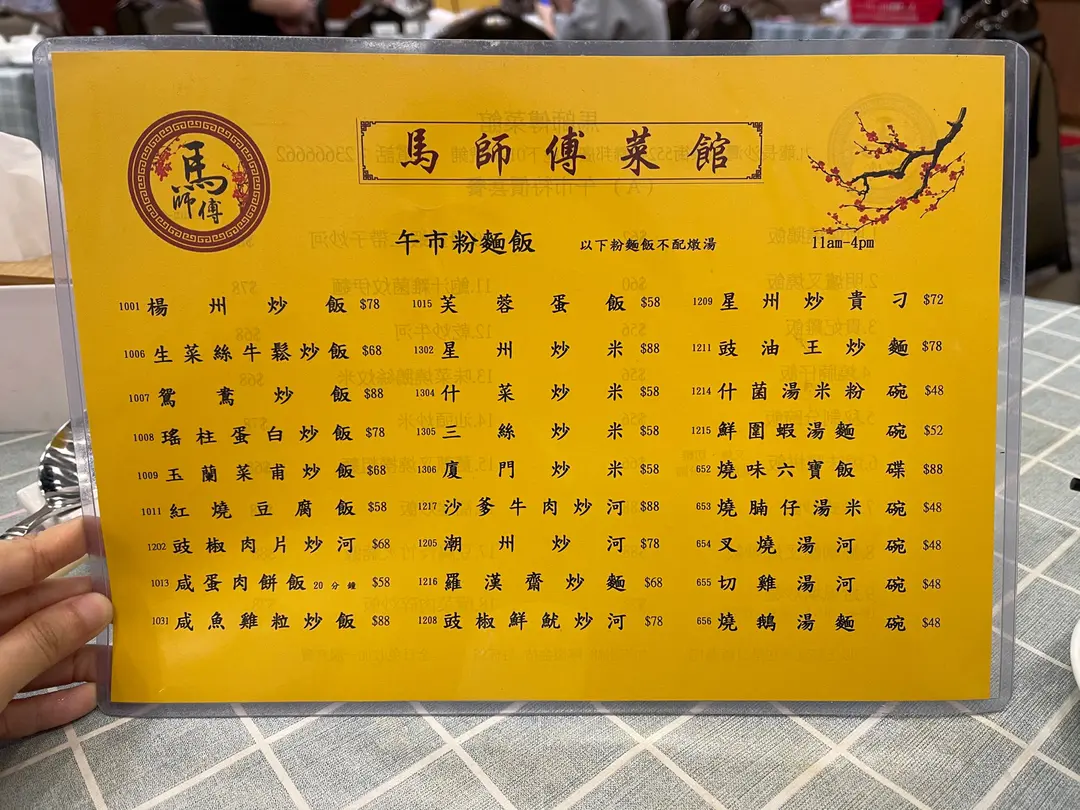 馬師傅
馬師傅菜館
午市粉麵飯 以下粉麵飯不配燉湯 11am-4pm
1001 楊州炒飯 $78
1006 生菜絲牛鬆炒飯 $68
1007 鴛鴦炒飯 $88
1008 瑤柱蛋白炒飯 $78
1009 玉蘭菜甫炒飯 $68
1011 紅燒豆腐飯 $58
1202 豉椒肉片炒河 $68
1013 咸蛋肉餅飯 20分鐘 $58
1031 咸魚雞粒炒飯 $88
1015 芙蓉蛋飯 $58
1302 星州炒米 $88
1304 什菜炒米 $58
1305 三絲炒米 $58
1306 廈門炒米 $58
1217 沙爹牛肉炒河 $88
1205 潮州炒河 $78
1216 羅漢齋炒麵 $68
1208 豉椒鮮魷炒河 $78
1209 星州炒貴刁 $72
1211 豉油王炒麵 $78
1214 什菌湯米粉 碗 $48
1215 鮮圍蝦湯麵 碗 $52
652 燒味六寶飯 碟 $88
653 燒腩仔湯米 碗 $48
654 叉燒湯河 碗 $48
655 切雞湯河 碗 $48
656 燒鵝湯麵 碗 $48